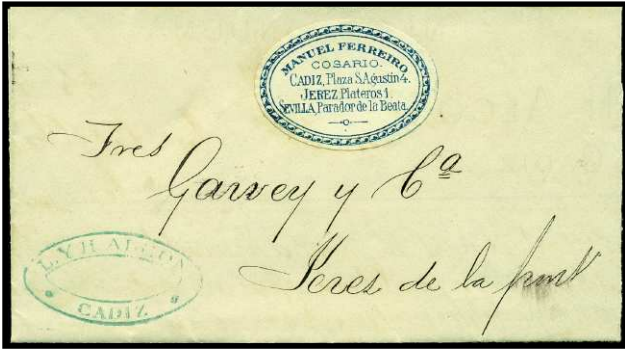 MANUEL FERREIRO
COSARIO.
CADIZ, Plaza S. Agustin 4.
JEREZ, Plateros 1.
SEVILLA, Parador de la Beata.
Sres
Garvey y Cª
Jerez de la front
L. Y H.
CADIZ